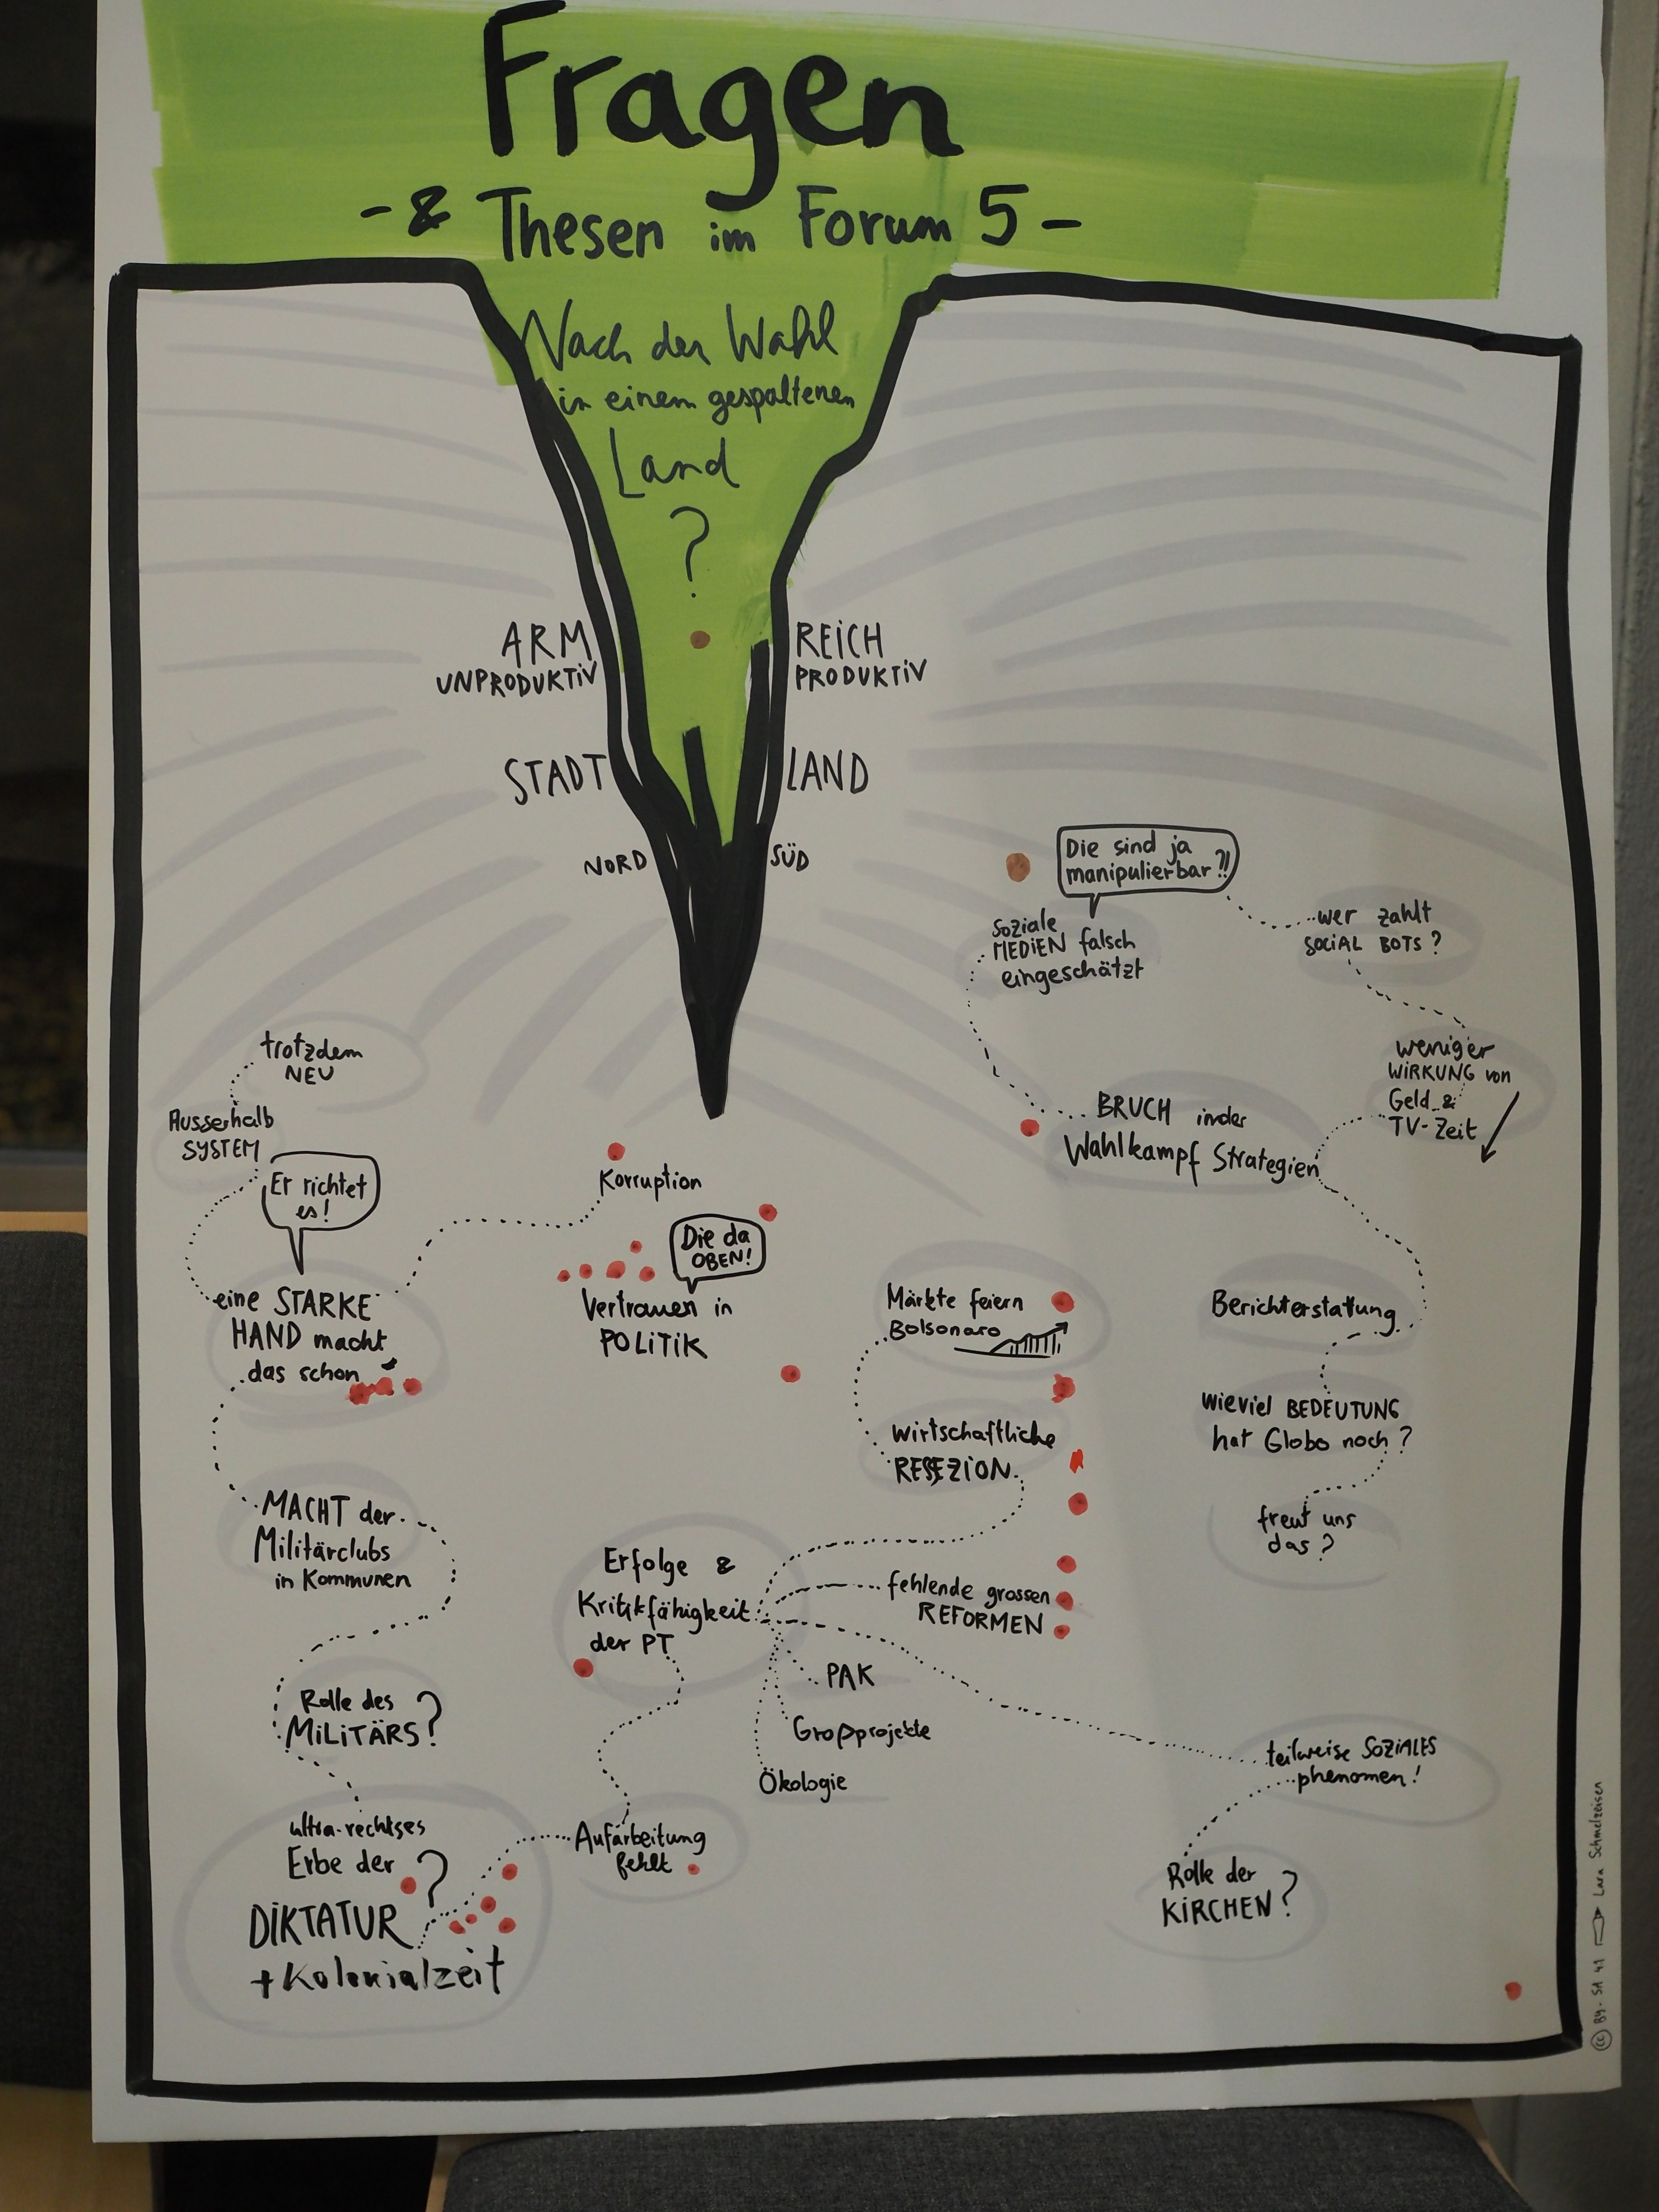 Fragen
- & Thesen im Forum 5 -
Nach der Wahl
in einem gespaltenen
Land
?
ARM
UNPRODUKTIV
REICH
PRODUKTIV
STADT
LAND
NORD
SÜD
Die sind ja
manipulierbar?!
Soziale
MEDIEN falsch
eingeschätzt
wer zahlt
SOCIAL BOTS?
weniger
WIRKUNG von
Geld &
TV-Zeit
BRUCH in der
Wahlkampf Strategien
trotzdem
NEU
Ausserhalb
SYSTEM
Er richtet
es!
eine STARKE
HAND macht
das schon
Korruption
Die da
OBEN!
Vertrauen in
POLITIK
Märkte feiern
Bolsonaro
wirtschaftliche
RESEZION
Berichterstattung
wieviel BEDEUTUNG
hat Globo noch?
freut uns
das?
MACHT der
Militärclubs
in Kommunen
Erfolge &
Kritikfähigkeit
der PT
fehlende grossen
REFORMEN
PAK
Großprojekte
Ökologie
Rolle des
MILITÄRS?
teilweise SOZIALES
phenomen!
ultra-rechtses
Erbe der ?
DIKTATUR
+ Kolonialzeit
Aufarbeitung
fehlt
Rolle der
KIRCHEN?
Lara Schmelzeisen